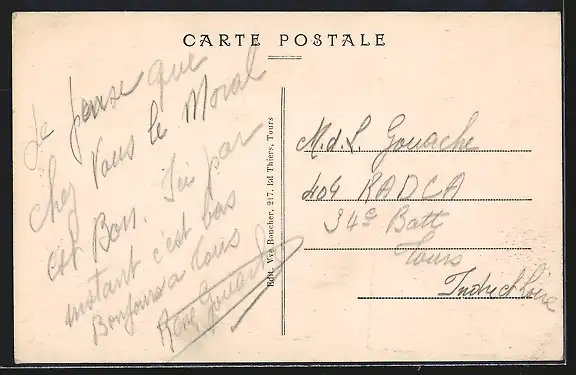 CARTE POSTALE
Je pense que
chez Vous le Moral
est Bon. Ici par
instant c'est bas
Bonjours a Tous
René Gouache
Edit. Vve Boucher, 217, Bd Thiers, Tours
M.d.L. Gouache
404 RADCA
34e Batt
Tours
Indre et Loire